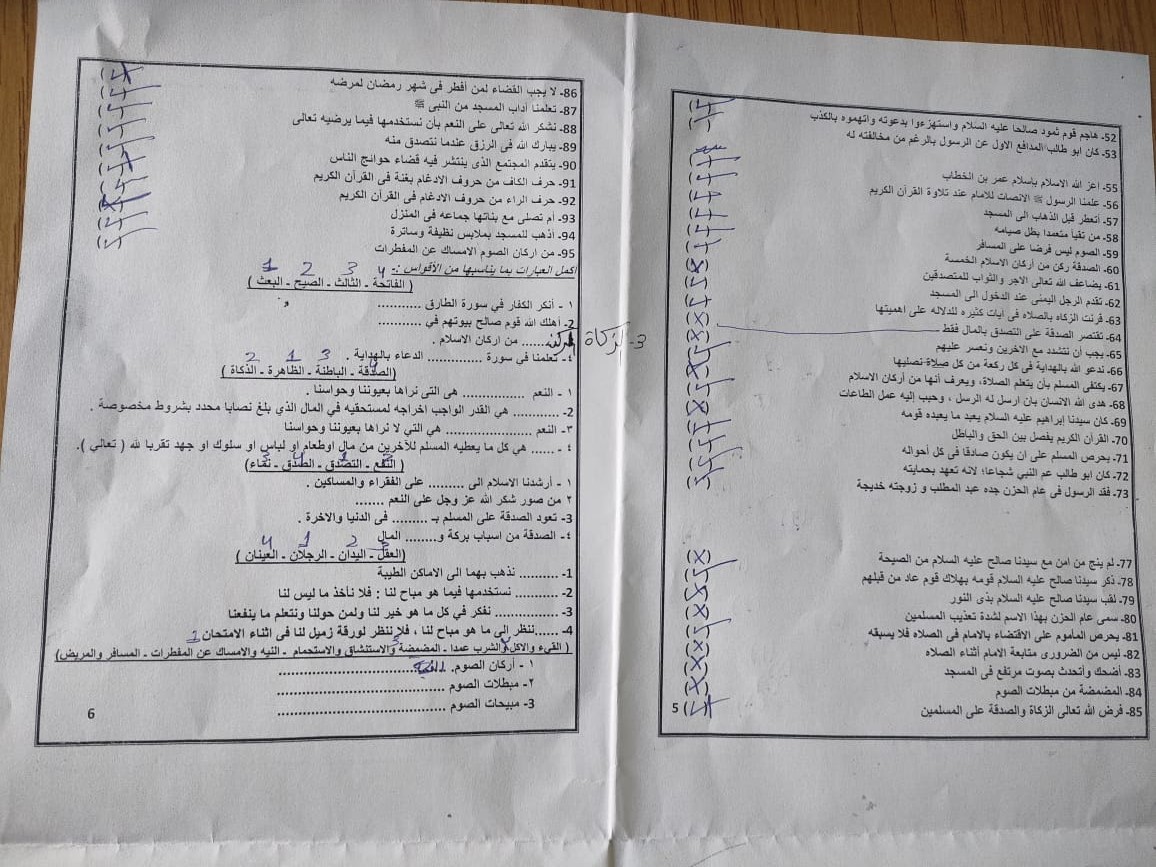 52- هاجم قوم ثمود صالحا عليه السلام واستهزءوا بدعوته واتهموه بالكذب
53- كان ابو طالب المدافع الاول عن الرسول بالرغم من مخالفته له
55- اعز الله الاسلام بإسلام عمر بن الخطاب
56- علمنا الرسول ﷺ الانصات للامام عند تلاوة القرآن الكريم
57- أتعطر قبل الذهاب الى المسجد
58- من تقيأ متعمدا بطل صيامه
59- الصوم ليس فرضا على المسافر
60- الصدقة ركن من أركان الاسلام الخمسة
61- يضاعف الله تعالى الاجر والثواب للمتصدقين
62- تقدم الرجل اليمنى عند الدخول الى المسجد
63- قرنت الزكاه بالصلاه فى آيات كثيره للدلاله على اهميتها
64- تقتصر الصدقة على التصدق بالمال فقط
65- يجب أن نتشدد مع الاخرين ونعسر عليهم
66- ندعو الله بالهداية فى كل ركعة من كل صلاة نصليها
67- يكتفى المسلم بأن يتعلم الصلاة، ويعرف أنها من أركان الاسلام
68- هدى الله الانسان بان ارسل له الرسل ، وحبب إليه عمل الطاعات
69- كان سيدنا إبراهيم عليه السلام يعبد ما يعبده قومه
70- القرآن الكريم يفصل بين الحق والباطل
71- يحرص المسلم على ان يكون صادقا فى كل أحواله
72- كان ابو طالب عم النبي شجاعا؛ لانه تعهد بحمايته
73- فقد الرسول فى عام الحزن جده عبد المطلب و زوجته خديجة
77- لم ينج من امن مع سيدنا صالح عليه السلام من الصيحة
78- ذكر سيدنا صالح عليه السلام قومه بهلاك قوم عاد من قبلهم
79- لقب سيدنا صالح عليه السلام بذى النور
80- سمى عام الحزن بهذا الاسم لشدة تعذيب المسلمين
81- يحرص المأموم على الاقتضاء بالامام فى الصلاه فلا يسبقه
82- ليس من الضرورى متابعة الامام أثناء الصلاه
83- أضحك وأتحدث بصوت مرتفع فى المسجد
84- المضمضة من مبطلات الصوم
85- فرض الله تعالى الزكاة والصدقة على المسلمين
5
86- لا يجب القضاء لمن أفطر فى شهر رمضان لمرضه
87- تعلمنا آداب المسجد من النبى ﷺ
88- نشكر الله تعالى على النعم بأن نستخدمها فيما يرضيه تعالى
89- يبارك الله فى الرزق عندما نتصدق منه
90- يتقدم المجتمع الذى ينتشر فيه قضاء حوائج الناس
91- حرف الكاف من حروف الادغام بغنة فى القرآن الكريم
92- حرف الراء من حروف الادغام فى القرآن الكريم
93- أم تصلى مع بناتها جماعه فى المنزل
94- أذهب للمسجد بملابس نظيفة وساترة
95- من اركان الصوم الامساك عن المفطرات
أكمل العبارات بما يناسبها من الأقواس :-
1 2 3 4
( الفاتحة - الثالث - الصيح - البعث )
١ - أنكر الكفار في سورة الطارق ...........
2- أهلك الله قوم صالح بيوتهم في ...........
3- الزكاة ........ من اركان الاسلام .
٤- تعلمنا فى سورة ............ الدعاء بالهداية .
2 1 3
(الصدقة - الباطنة - الظاهرة - الذكاة )
١ - النعم .................. هى التى نراها بعيوننا وحواسنا .
2- ............ هي القدر الواجب اخراجه لمستحقيه في المال الذي بلغ نصابا محدد بشروط مخصوصة .
٣- النعم .................... هي التي لا نراها بعيوننا وحواسنا
٤ - ...... هي كل ما يعطيه المسلم للآخرين من مال اوطعام او لباس او سلوك او جهد تقربا لله ( تعالي ).
( النفع - التصدق - الصدق - نماء)
١ - أرشدنا الاسلام الى ......... على الفقراء والمساكين .
٢ من صور شكر الله عز وجل على النعم .......
3- تعود الصدقة على المسلم بـ ......... فى الدنيا والاخرة .
٤- الصدقة من اسباب بركة و........ المال
4 1 2 3
(العقل - اليدان - الرجلان - العينان )
1- .......... نذهب بهما الى الاماكن الطيبة
2- ........... نستخدمها فيما هو مباح لنا : فلا نأخذ ما ليس لنا
3- ................ نفكر في كل ما هو خير لنا ولمن حولنا ونتعلم ما ينفعنا
4- ......ننظر إلى ما هو مباح لنا ، فلا ننظر لورقة زميل لنا فى اثناء الامتحان
( القيء والاكل والشرب عمدا - المضمضة والاستنشاق والاستحمام - النيه والامساك عن المفطرات - المسافر والمريض)
١ - أركان الصوم. ...............................
٢- مبطلات الصوم ...............................
3- مبيحات الصوم ...............................
6